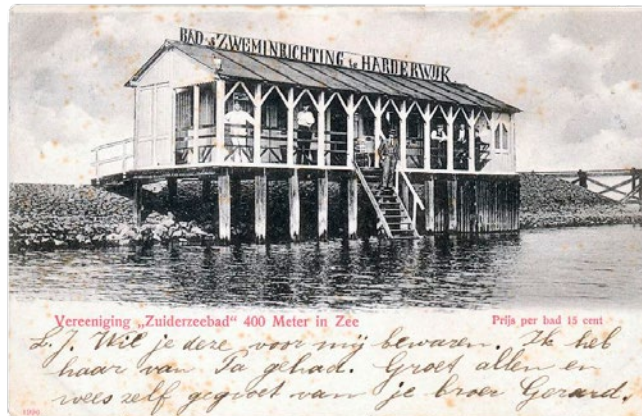 BAD & ZWEMINRICHTING te HARDERWIJK.
Vereeniging „Zuiderzeebad" 400 Meter in Zee
Prijs per bad 15 cent
L.J. Wil je deze voor mij bewaren. Ik heb
haar van Ta gehad. Groet allen en
wees zelf gegroet van je broer Gerard.